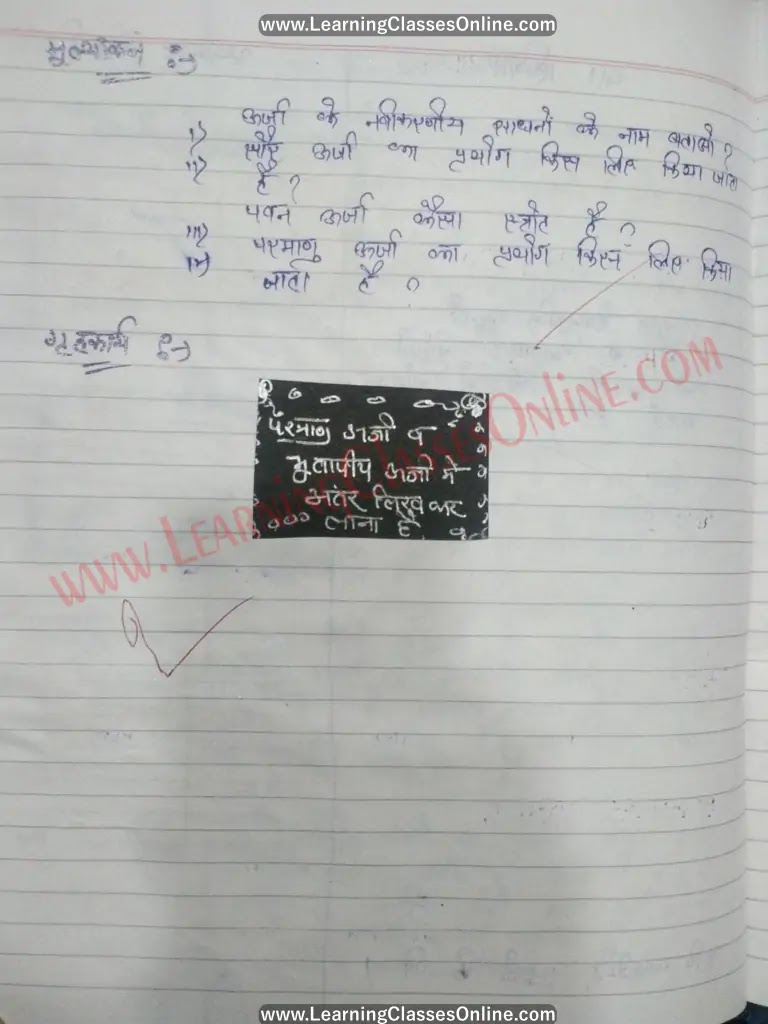 www.LearningClassesOnline.com
मूल्यांकन :-
i) ऊर्जा के नवीकरणीय साधनों के नाम बताओ ?
ii) सौर ऊर्जा का प्रयोग किस लिए किया जाता
है ?
iii) पवन ऊर्जा कैसा स्त्रोत है ?
iv) परमाणु ऊर्जा का प्रयोग किस लिए किया
जाता है ?
गृहकार्य :-
परमाणु ऊर्जा व
भूतापीय ऊर्जा में
अंतर लिख कर
लाना है
www.LearningClassesOnline.com
www.LearningClassesOnline.com